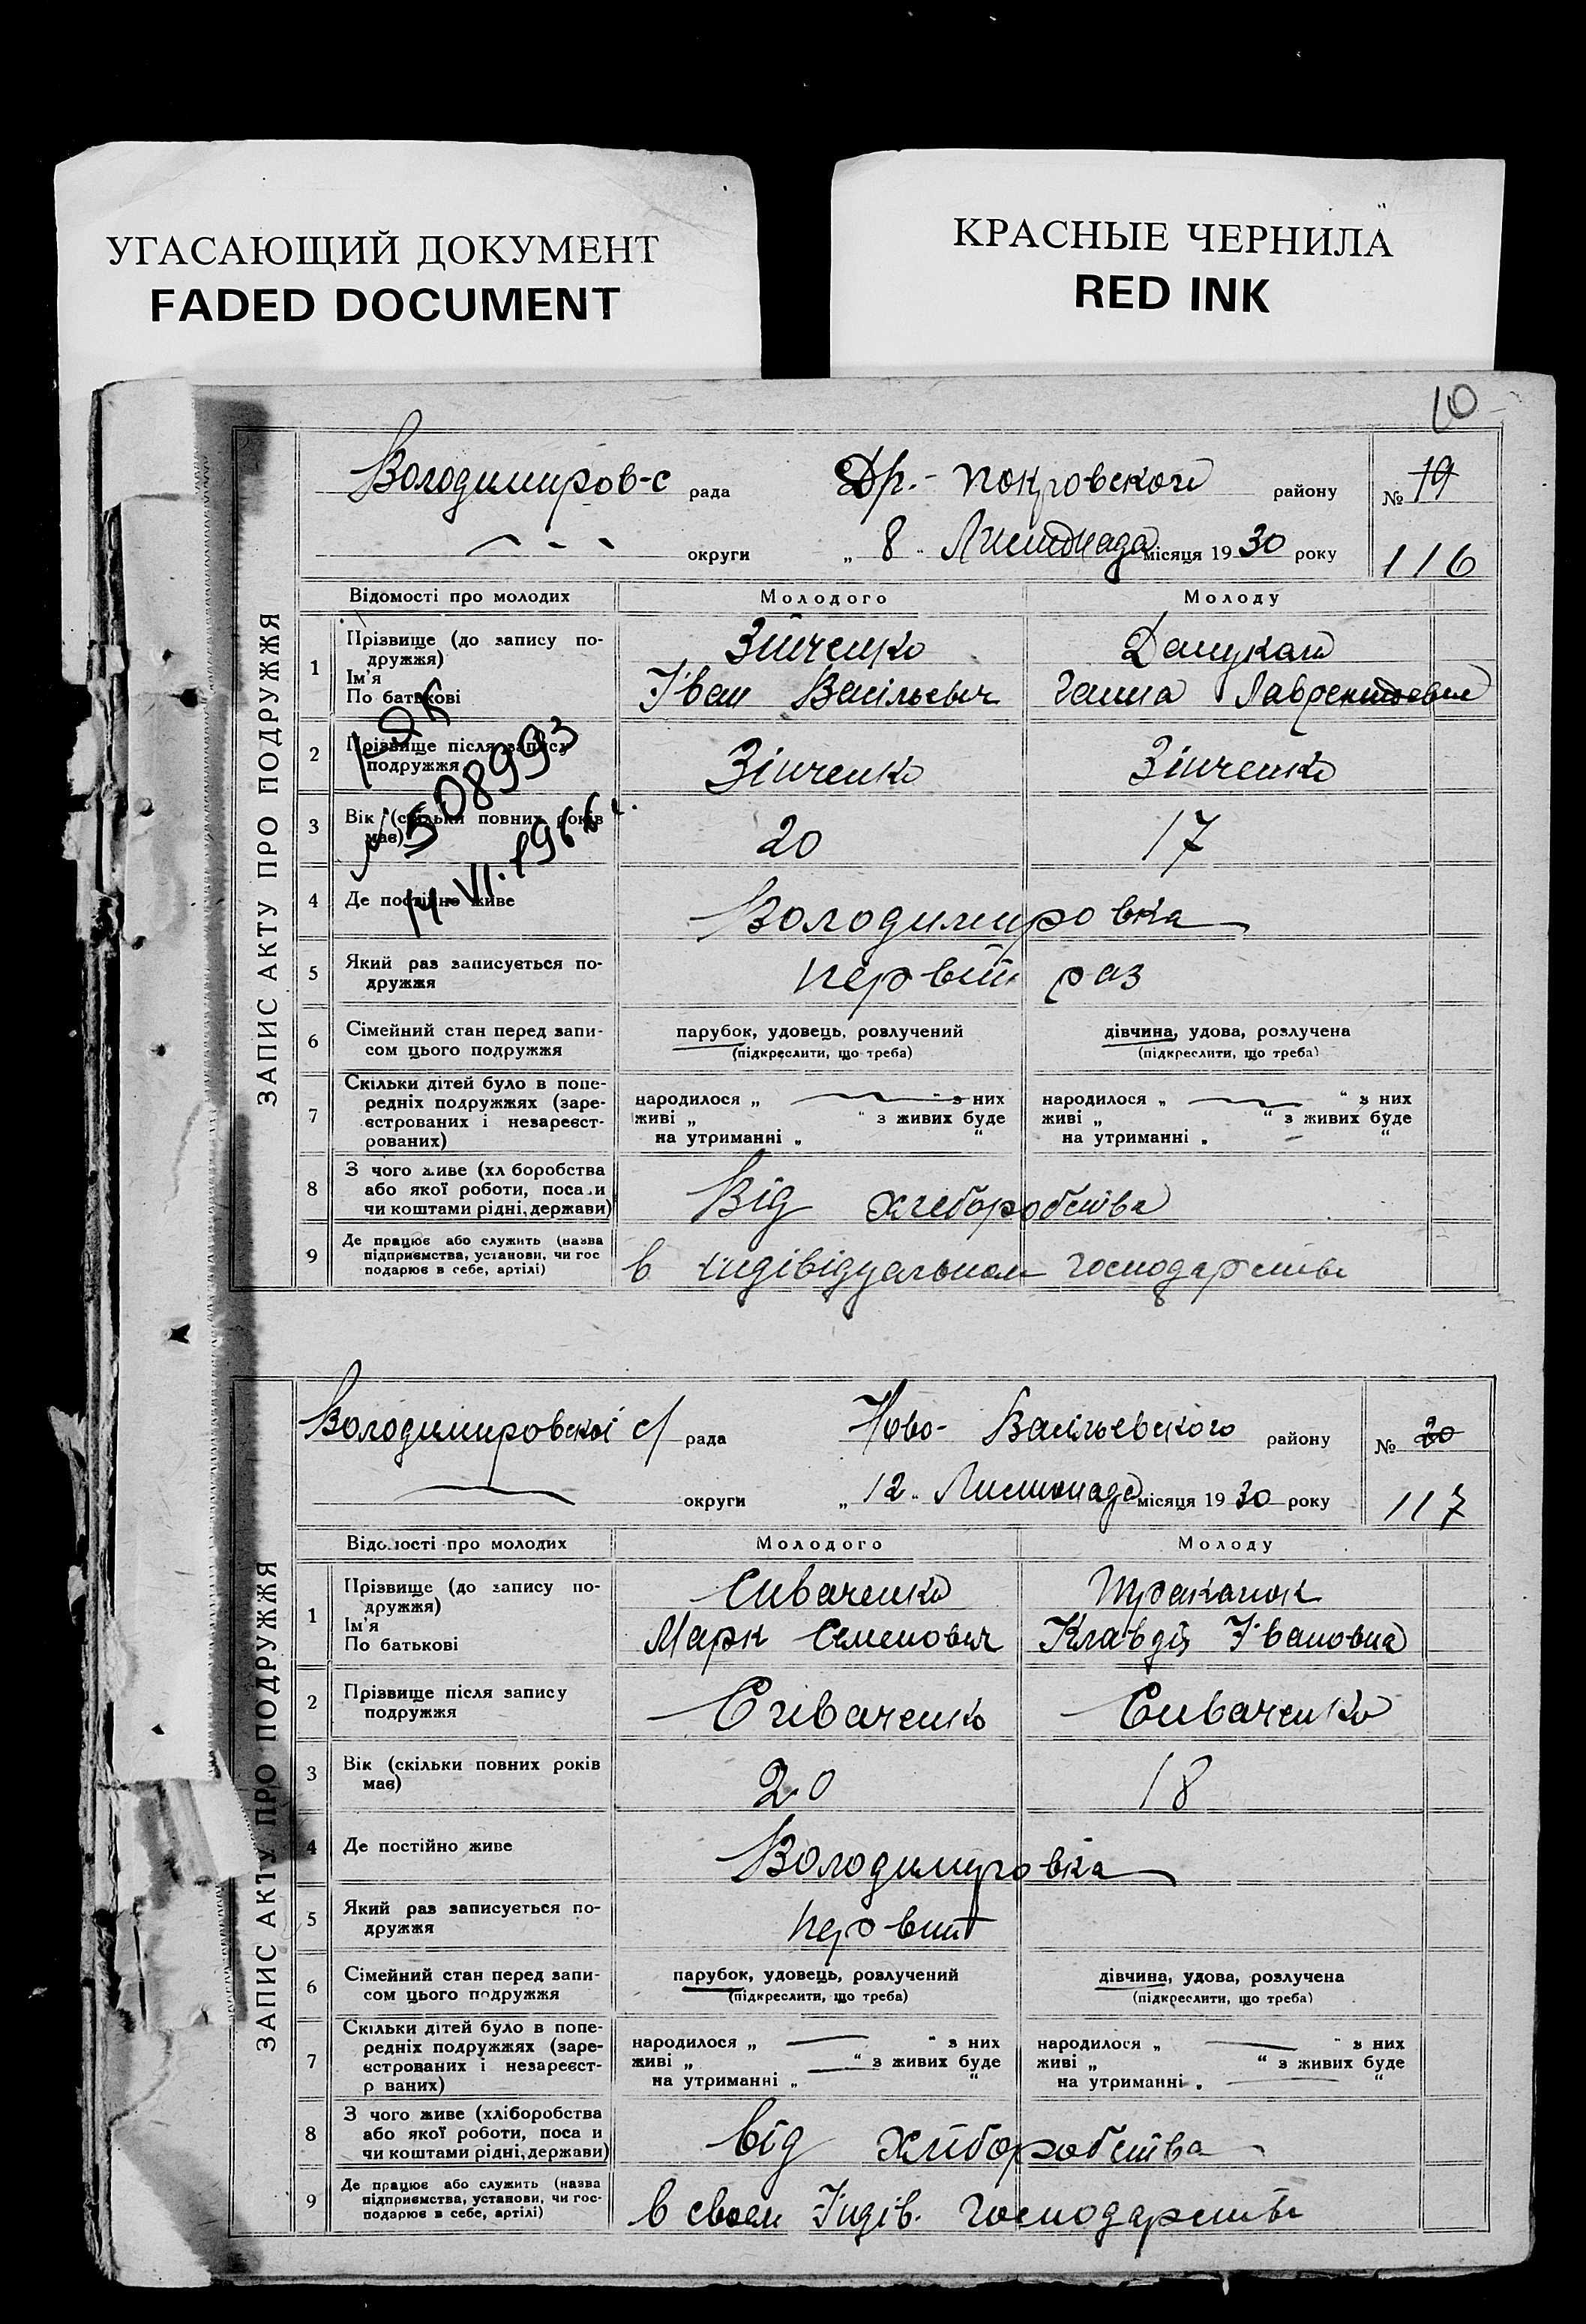 УГАСАЮЩИЙ ДОКУМЕНТ
FADED DOCUMENT
КРАСНЫЕ ЧЕРНИЛА
RED INK
10
ЗАПИС АКТУ ПРО ПОДРУЖЖЯ
Володимиров-с рада Др.- Покровского району № 19
округи „ 8 " Листопада місяця 1930 року 116
Відомості про молодих Молодого Молоду
1 Прізвище (до запису по- Зінченко
дружжя)
Ім'я Іван Васільевич Ганна Лаврентьевна
По батькові
2 Прізвище після запису Зінченко Зінченко
подружжя
І-ЯК
№ 508993
14.VI.1966 г.
3 Вік (скільки повних років 20 17
має)
4 Де постійно живе Володимировка
5 Який раз записується по- первий раз
дружжя
6 Сімейний стан перед запи- парубок, удовець, розлучений дівчина, удова, розлучена
сом цього подружжя (підкреслити, що треба) (підкреслити, що треба)
7 Скільки дітей було в попе-
редніх подружжях (заре- народилося „ " з них народилося „ " з них
єстрованих і незареєст- живі „ " з живих буде живі „ " з живих буде
рованих) на утриманні „ " на утриманні „ "
8 З чого живе (хл боробства Від хлеборобства
або якої роботи, поса и
чи коштами рідні, держави)
9 Де працює або служить (назва в індівідуальном господарстві
підприємства, установи, чи гос
подарює в себе, артілі)
ЗАПИС АКТУ ПРО ПОДРУЖЖЯ
Володимировскої с/ рада Ново- Васильевского району № 20
округи „ 12 " Листопада місяця 1930 року 117
Відомості про молодих Молодого Молоду
1 Прізвище (до запису по- Сиваченко
дружжя)
Ім'я Марк Семенович Клавдія Івановна
По батькові
2 Прізвище після запису Сиваченко Сиваченко
подружжя
3 Вік (скільки повних років 20 18
має)
4 Де постійно живе Володимировка
5 Який раз записується по- первий
дружжя
6 Сімейний стан перед запи- парубок, удовець, розлучений дівчина, удова, розлучена
сом цього подружжя (підкреслити, що треба) (підкреслити, що треба)
7 Скільки дітей було в попе-
редніх подружжях (заре- народилося „ " з них народилося „ " з них
єстрованих і незареєст- живі „ " з живих буде живі „ " з живих буде
р ваних) на утриманні „ " на утриманні „ "
8 З чого живе (хліборобства від хліборобства
або якої роботи, поса и
чи коштами рідні, держави)
9 Де працює або служить (назва в своем Індів. господарстві
підприємства, установи, чи гос-
подарює в себе, артілі)